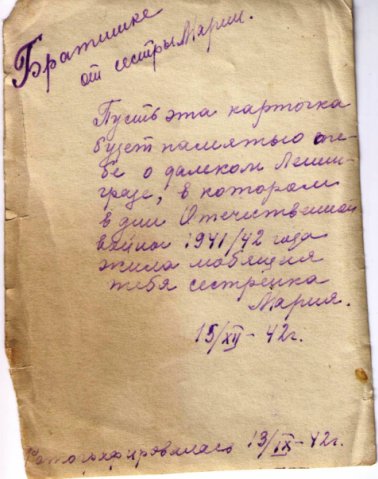 Братишке
от сестры Марии.
Пусть эта карточка
будет памятью те-
бе о далеком Ленин-
граде, в котором
в дни Отечественной
войны 1941/42 года
жила любящая
тебя сестрёнка
Мария.
15/XII - 42г.
Фотографировалась 13/IX - 42г.